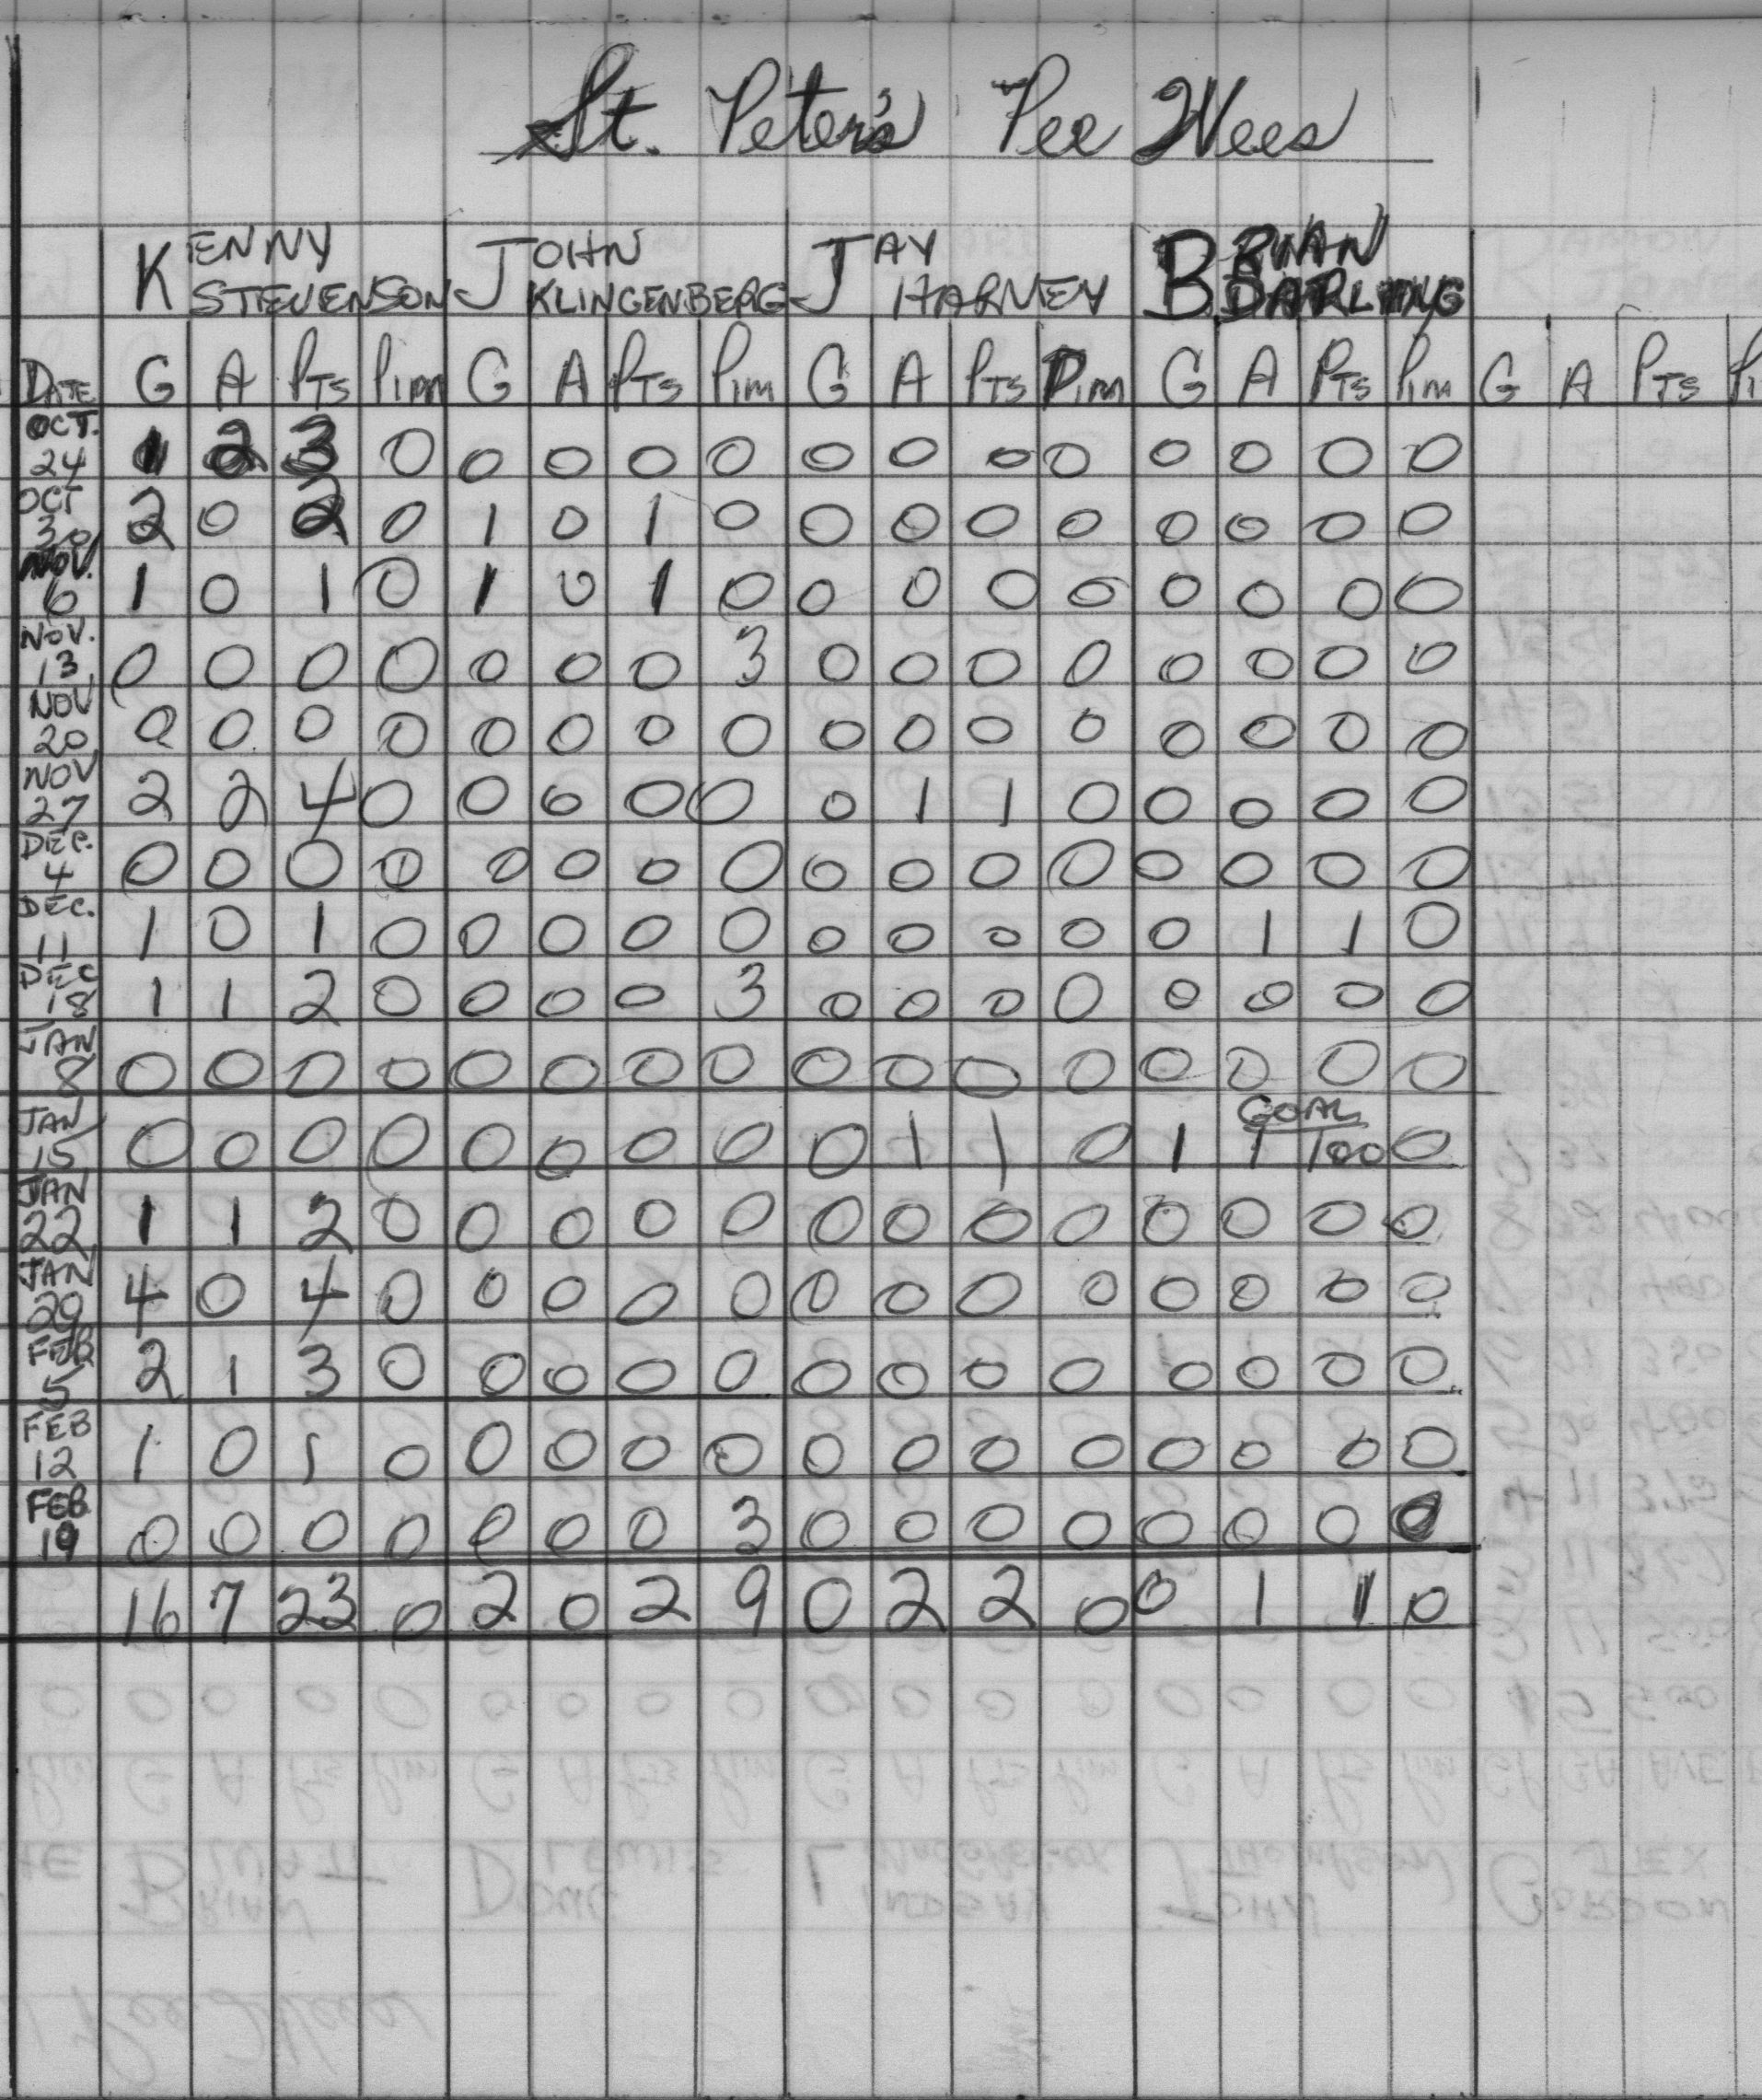 St. Peter's Pee Wees
KENNY STEVENSON JOHN KLINGENBERG JAY HARNEY BRIAN DARLING
DATE G A PTS PIM G A PTS PIM G A PTS PIM G A PTS PIM G A PTS
OCT. 24 1 2 3 0 0 0 0 0 0 0 0 0 0 0 0 0
OCT 30 2 0 2 0 1 0 1 0 0 0 0 0 0 0 0 0
NOV. 6 1 0 1 0 1 0 1 0 0 0 0 0 0 0 0 0
NOV. 13 0 0 0 0 0 0 0 3 0 0 0 0 0 0 0 0
NOV 20 0 0 0 0 0 0 0 0 0 0 0 0 0 0 0 0
NOV 27 2 2 4 0 0 0 0 0 0 1 1 0 0 0 0 0
DEC. 4 0 0 0 0 0 0 0 0 0 0 0 0 0 0 0 0
DEC. 11 1 0 1 0 0 0 0 0 0 0 0 0 0 1 1 0
DEC 18 1 1 2 0 0 0 0 3 0 0 0 0 0 0 0 0
JAN 8 0 0 0 0 0 0 0 0 0 0 0 0 0 0 0 0
JAN 15 0 0 0 0 0 0 0 0 0 1 1 0 1 GOAL 1 100 0
JAN 22 1 1 2 0 0 0 0 0 0 0 0 0 0 0 0 0
JAN 29 4 0 4 0 0 0 0 0 0 0 0 0 0 0 0 0
FEB 5 2 1 3 0 0 0 0 0 0 0 0 0 0 0 0 0
FEB 12 1 0 1 0 0 0 0 0 0 0 0 0 0 0 0 0
FEB 19 0 0 0 0 0 0 0 3 0 0 0 0 0 0 0 0
16 7 23 0 2 0 2 9 0 2 2 0 0 1 1 0